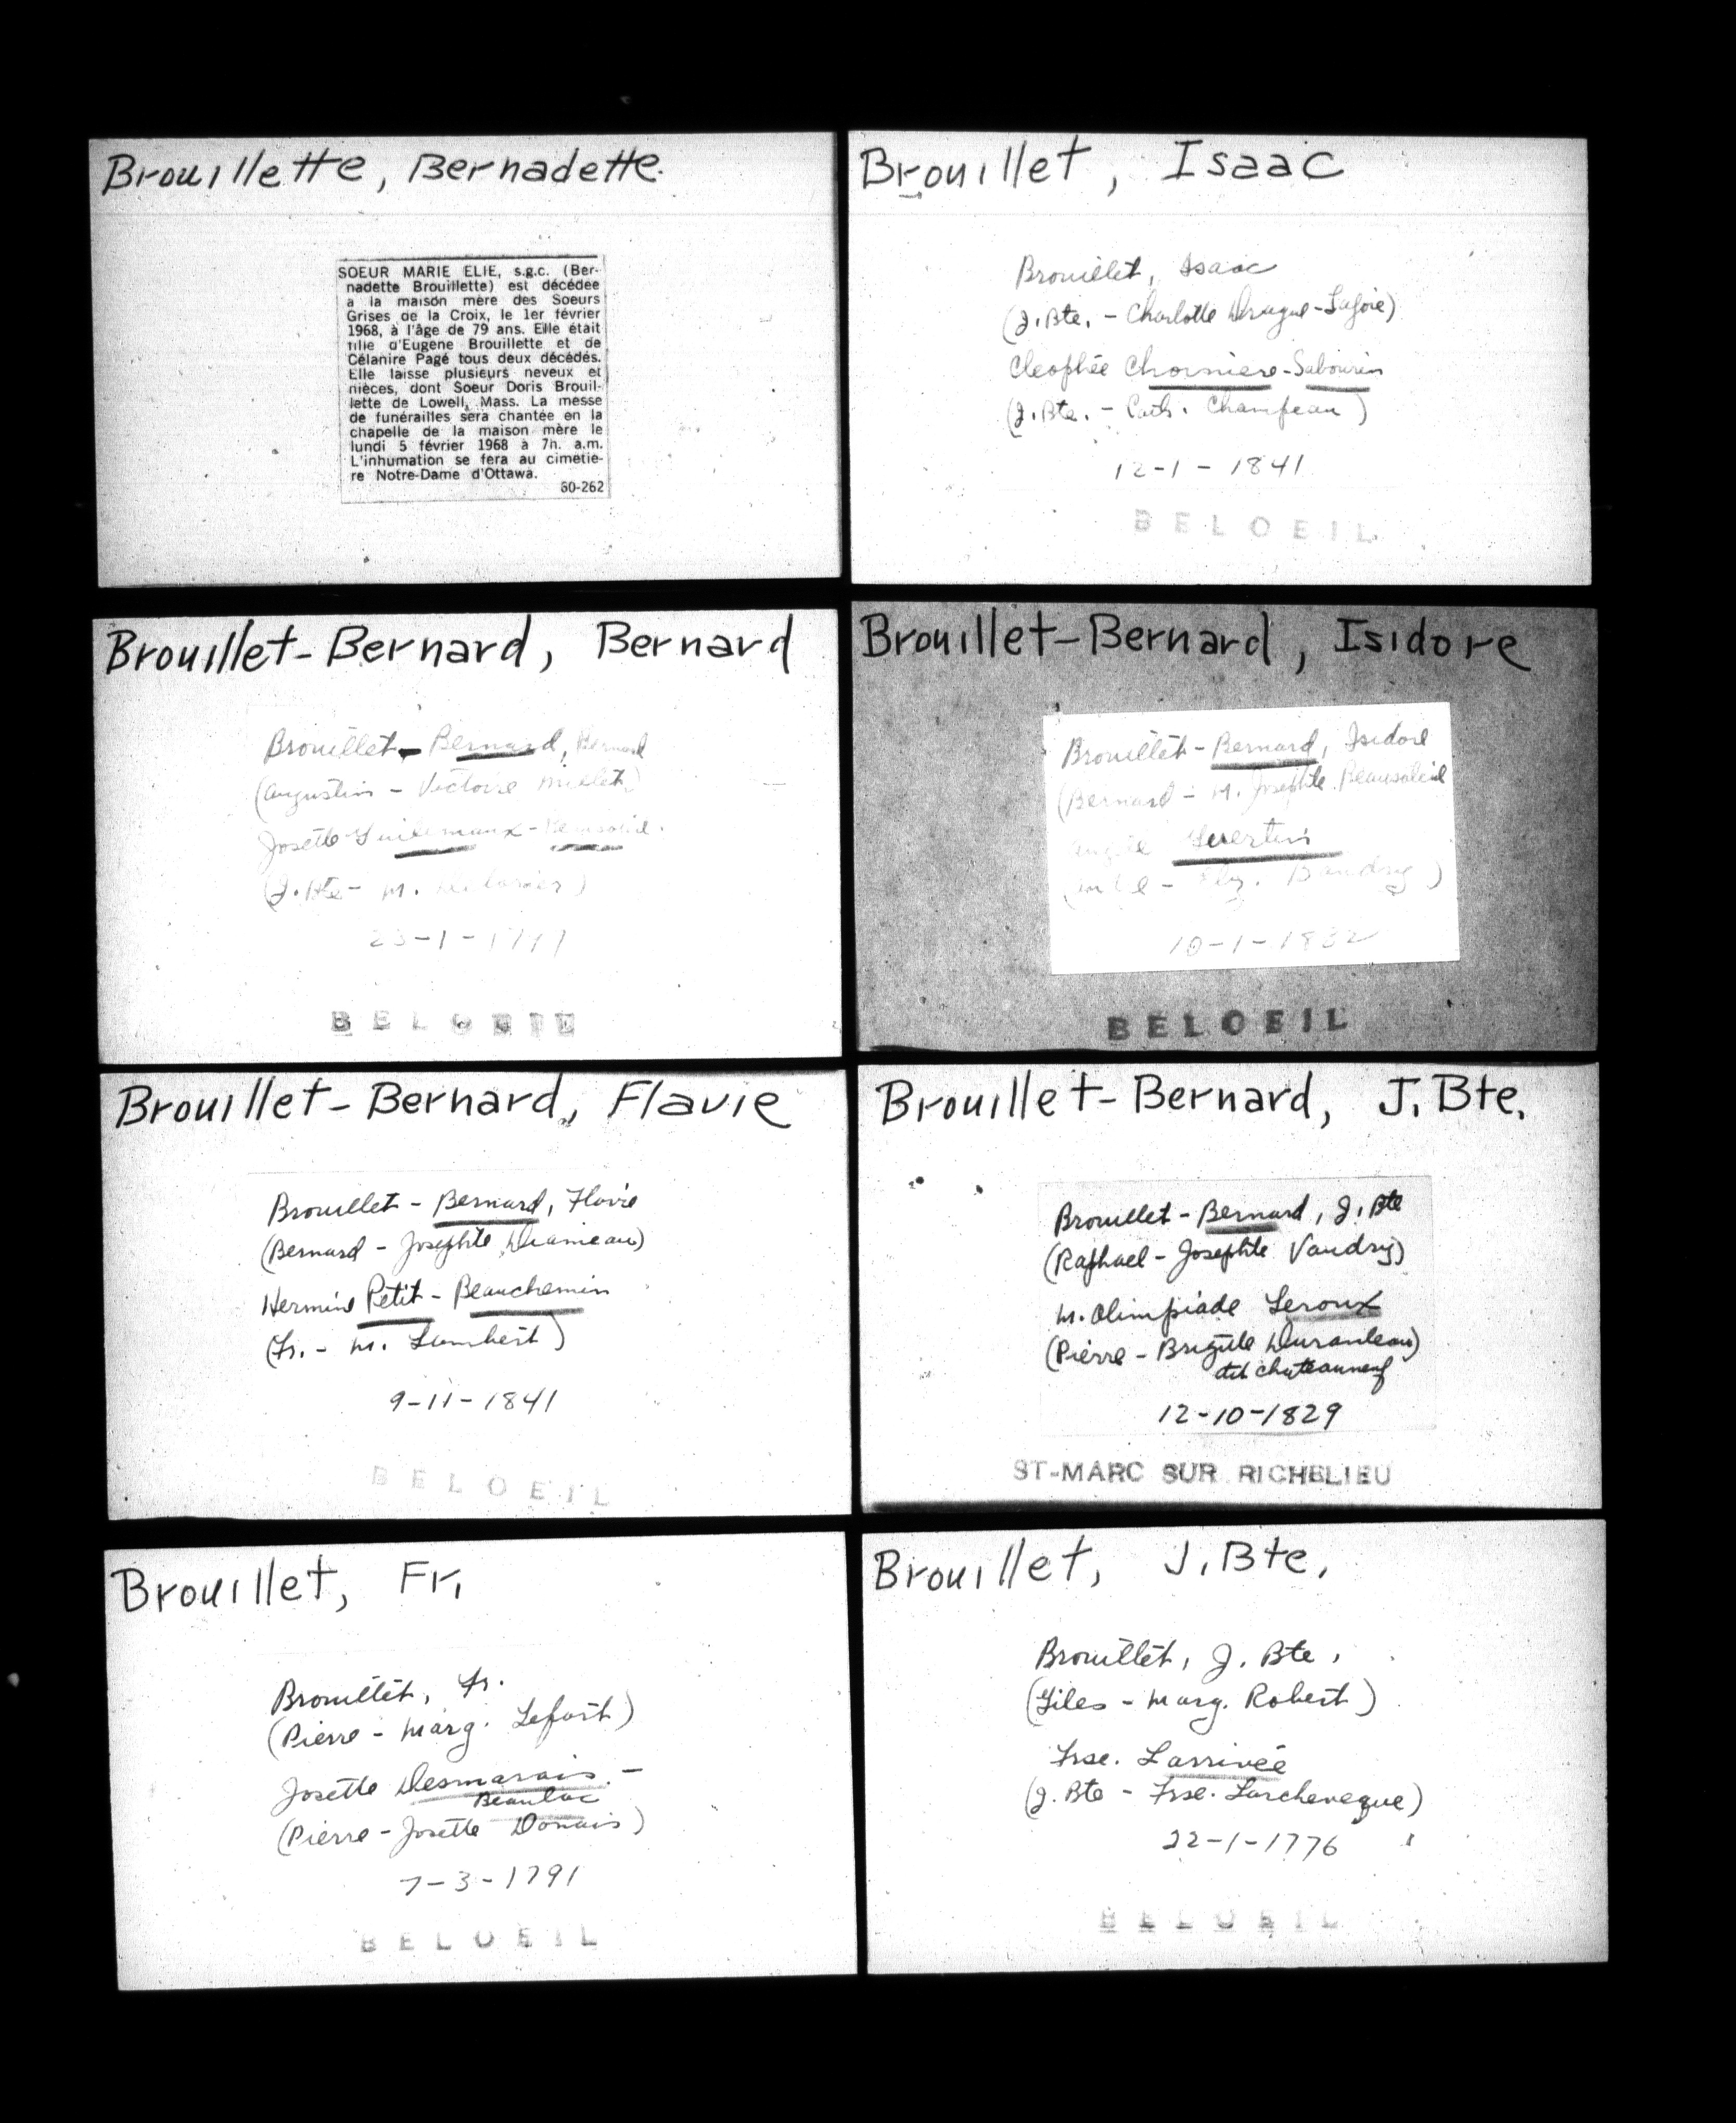 Brouillette, Bernadette.
SOEUR MARIE ELIE, s.g.c. (Ber-
nadette Brouillette) est décédée
a la maison mère des Soeurs
Grises de la Croix, le 1er février
1968, à l'âge de 79 ans. Elle était
fille d'Eugene Brouillette et de
Célanire Pagé tous deux décédés.
Elle laisse plusieurs neveux et
nièces, dont Soeur Doris Brouil-
lette de Lowell, Mass. La messe
de funérailles sera chantée en la
chapelle de la maison mère le
lundi 5 février 1968 à 7h. a.m.
L'inhumation se fera au cimetie-
re Notre-Dame d'Ottawa.
60-262
Brouillet, Isaac
Brouillet, Isaac
(J. Bte. - Charlotte -Lajoie)
Cleophée -Sabourin
(J. Bte. - Cath. Champeau)
12-1-1841
BELOEIL
Brouillet-Bernard, Bernard
Brouillet-Bernard, Bernard
(Augustin - Victoire Millet)
Josette
(J. Bte - M.
BELOEIL
Brouillet-Bernard, Isidore
Brouillet-Bernard, Isidore
(Bernard - M. Josephte Beausoleil
(
- Baudry)
10-1-1832
BELOEIL
Brouillet-Bernard, Flavie
Brouillet-Bernard, Flavie
(Bernard - Josephte
Hermine Petit-Beauchemin
(Fr. - M. Lambert)
9-11-1841
BELOEIL
Brouillet-Bernard, J. Bte.
Brouillet-Bernard, J. Bte
(Raphael - Josephte Vaudry)
M. Olimpiade Leroux
(Pierre - Brigitte Duranleau)
dit chateauneuf
12-10-1829
ST-MARC SUR RICHELIEU
Brouillet, Fr.
Brouillet, Fr.
(Pierre - Marg. Lefort)
Josette Desmarais -
Beaulac
(Pierre - Josette Donais)
7-3-1791
BELOEIL
Brouillet, J. Bte.
Brouillet, J. Bte,
(Giles - Marg. Robert)
Frse. Larrivée
(J. Bte - Frse. Larcheveque)
22-1-1776
BELOEIL